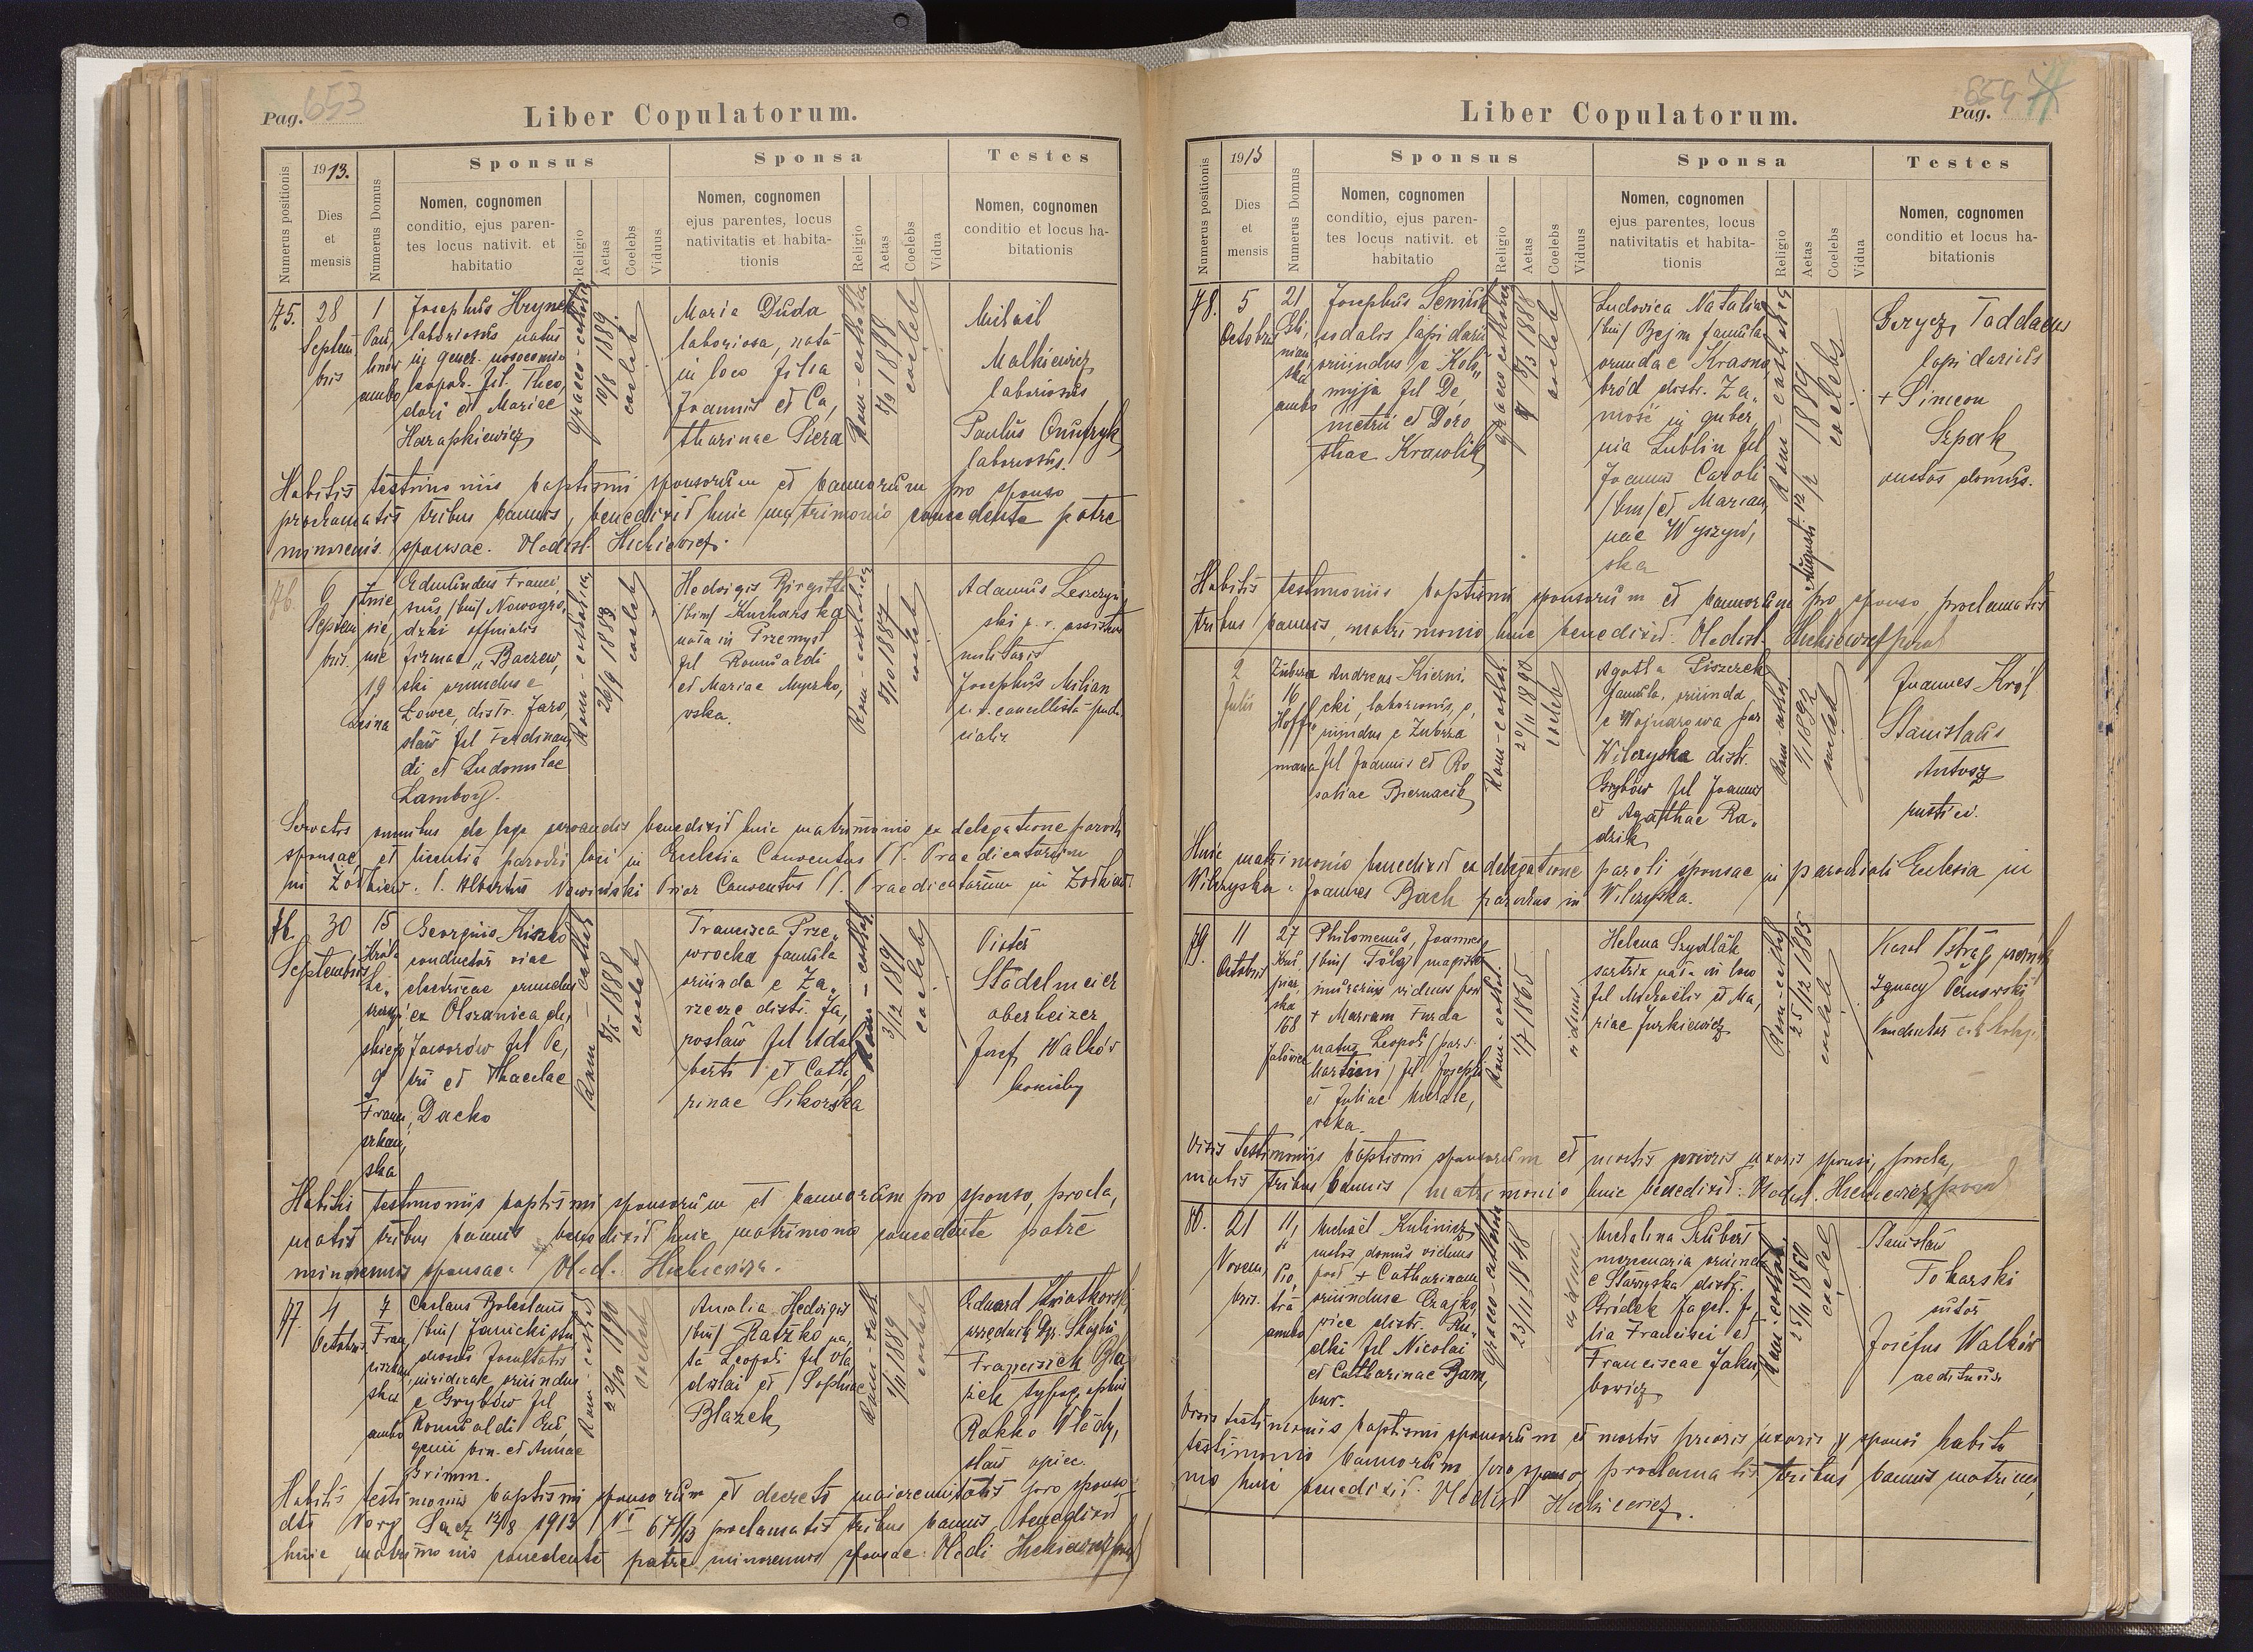 Pag. 653
Liber Copulatorum.
Numerus positionis
1913.
Dies
et
mensis
Numerus Domus
Sponsus
Nomen, cognomen
conditio, ejus paren-
tes locus nativit. et
habitatio
Religio
Aetas
Coelebs
Viduus
Sponsa
Nomen, cognomen
ejus parentes, locus
nativitatis et habita-
tionis
Religio
Aetas
Coelebs
Vidua
Testes
Nomen, cognomen
conditio et locus ha-
bitationis
75.
28
Septem
bris
1
Pau,
linów
ambo
Josephus Hrynek
laboriosus natus
in gener. nosocomio
leopol. fil. Theo,
dori et Mariae
Harapkiewicz
graeco-catholica
10/8 1889.
coeleb
Maria Duda
laboriosa, nata
in loco filia
Joannis et Ca,
tharinae Siera
Rom-catholica
8/9 1898
coeleb
Michael
Malkiewicz
laboriosus
Paulus Onufryk
laboriosus.
Habitis testimoniis baptismi sponsorum et bannorum pro sponso
proclamatis tribus bannis, benedixit huic matrimonio concedente patre
minorenis sponsae. Vladisl. Hickiewicz.
76.
6
Septem
bris.
19
Edmundus Franci,
/bin/ Nowogro,
dzki officialis
firmae "Baczew,
ski oriundus e
Łowce, distr. Jaro,
sław fil Ferdinan
di et Ludomilae
Lamboy.
Rom-catholica
26/9 1883
coeleb
Hedvigis Birgitta
/bin/ Kucharska
nata in Przemyśl
fil Romualdi
et Mariae Myszko,
vska.
Rom-catholica
8/10 1887
coeleb
Adamus Leszczyń
ski c. r. assistens
militaris
Josephus Milian
c. r. cancellista judi
cialis
Servatis omnibus de lege servandis benedixit huic matrimonio ex delegatione parochi
sponsae et licentia parochi loci in Ecclesia Conventus PP. Praedicatorum
in Żółkiew. P. Albertus Prior Conventus PP. Praedicatorum in Żółkiew
76.
30
Septembris
15
9
Franci,
szkań,
ska
Georgius Kiszko
conductor viae
electricae oriundus
ex Olszanica de,
Jaworów fil Pe,
tri et Theclae
Dacko
Rom-cathol
5/5 1888
coeleb
Francisca Prze,
wrocka famula
oriunda e Za,
rzecze distr. Ja,
rosław fil Adal
berti et Catha
rinae Sikorska
Rom-cathol.
3/12 1891
coeleb
Pioter
Städelmeier
oberheizer
Josef Walków
kościelny
Habitis testimoniis baptismi sponsorum et bannorum pro sponso, procla,
matis tribus bannis benedixit huic matrimonio concedente patre
minorennis sponsae: Vlad. Hickiewicz.
77.
4
Octobris
7
Fran,
ciszkań,
ska
ambo
Ceslaus Boleslaus
/bin/ Janicki stu
diosus facultatis
juridicae oriundus
e Grybów fil
Romualdi Eu,
genii bin. et Annae
Grimm.
Rom-cathol
22/10 1890
coeleb
Amalia Hedvigis
/bin/ Ratzko na,
ta Leopoli fil Vla
dislai et Sophiae
Blazek
Rom-cath.
1889
coeleb
Eduard Kwiatkowski
urzędnik
Franciszek Bla
żek typographus
Ratzko Włady,
sław opiec.
Habitis testimoniis baptismi sponsorum et decreto maiorennitatis pro sponso
dtto Nowy Sącz 12/8 1913 VI 67/13 proclamatis tribus bannis benedixit
huic matrimonio concedente patre minorennis sponsae: Vladi Hickiewicz
Liber Copulatorum.
654 Pag.
Numerus positionis
1913
Dies
et
mensis
Numerus Domus
Sponsus
Nomen, cognomen
conditio, ejus paren-
tes locus nativit. et
habitatio
Religio
Aetas
Coelebs
Viduus
Sponsa
Nomen, cognomen
ejus parentes, locus
nativitatis et habita-
tionis
Religio
Aetas
Coelebs
Vidua
Testes
Nomen, cognomen
conditio et locus ha-
bitationis
78.
5
Octobris
21
ambo
Josephus Seniuk
sodalis lapidarii
oriundus e Koło,,
myja fil De,
metrii et Doro
theae Krawlik
graeco catholica
1888
coeleb
Ludovica Natalia
/bin/ Bejm famula
orundae Krasno,
bród distr. Za,
mość in guber
nia Lublin fil
Joannis Caroli
/bin/ et Marian,
nae Wyszyw,
ska
Rom-catholica
Augusti 1889
coelebs
Beryez, Taddaeus
lapidarius
+ Simeon
Szpak
custos domus.
Habitis testimoniis baptismi sponsorum et bannorum pro sponso, proclamatis
tribus bannis, matrimonio huic benedixit. Vladisl. Hickiewicz
2
Julii
Zubrza
16
Hoff,
mana
Andreas Kierni,
cki, laboriosus, o,
riundus e Zubrza
fil Joannis et Ro
saliae Biernacik
Rom-cathol.
20/11 1890
coeleb
Agatha Piszczek
famula, oriunda
e Wojnarowa par
Wilczyska distr.
Grybów fil Joannis
et Agathae Ra,
dzik
Rom-cathol
1892
coeleb
Joannes Król
Stanislaus
Antosz
rustici.
Huic matrimonio benedixit ex delegatione parochi sponsae in parochiali Ecclesia in
Wilczyska: Joannes Bach parochus in Wilczyska.
79.
11
Octobris
27
168
Philomenus, Joannes
/bin/ Tölg magister
murarius viduus post
+ Mariam Furda
natus Leopoli /par s.
Martini/ fil Josephi
et Juliae Michale,
vska.
Rom-cathol.
1865
viduus
Helena Szydlak
sartrix nata in loco
fil Michaelis et Ma,
riae Jurkiewicz
Rom-cathol
25/12 1885
coeleb
Karol Pstrąg
Ignacy
Conductor
Visis testimoniis baptismi sponsorum et mortis prioris uxoris sponsi, procla,
matis tribus bannis matrimonio huic benedixit: Vladisl. Hickiewicz
80.
21
Novem,
bris.
11,
Pio,
tra
ambo
Michaël Kulinicz
custos domus viduus
post + Catharinam
oriundus e Czajko,
wice distr. Ru,
dki fil Nicolai
et Catharinae Bam,
bur.
graeco-catholica
23/11 1848
viduus
Michalina Szubert
mercenaria oriunda
e Starzyska distr.
Gródek Jagel. fi,
lia Francisci et
Franciscae Jaku,
bowicz
Rom-cathol.
25/11 1860
coeleb
Stanisław
Tokarski
sutor
Josefus Walków
aedituus
Visis testimoniis baptismi sponsorum et mortis prioris uxoris sponsi habito
testimonio bannorum pro sponso proclamatis tribus bannis matrimo,
nio huic benedixit: Vladisl Hickiewicz.